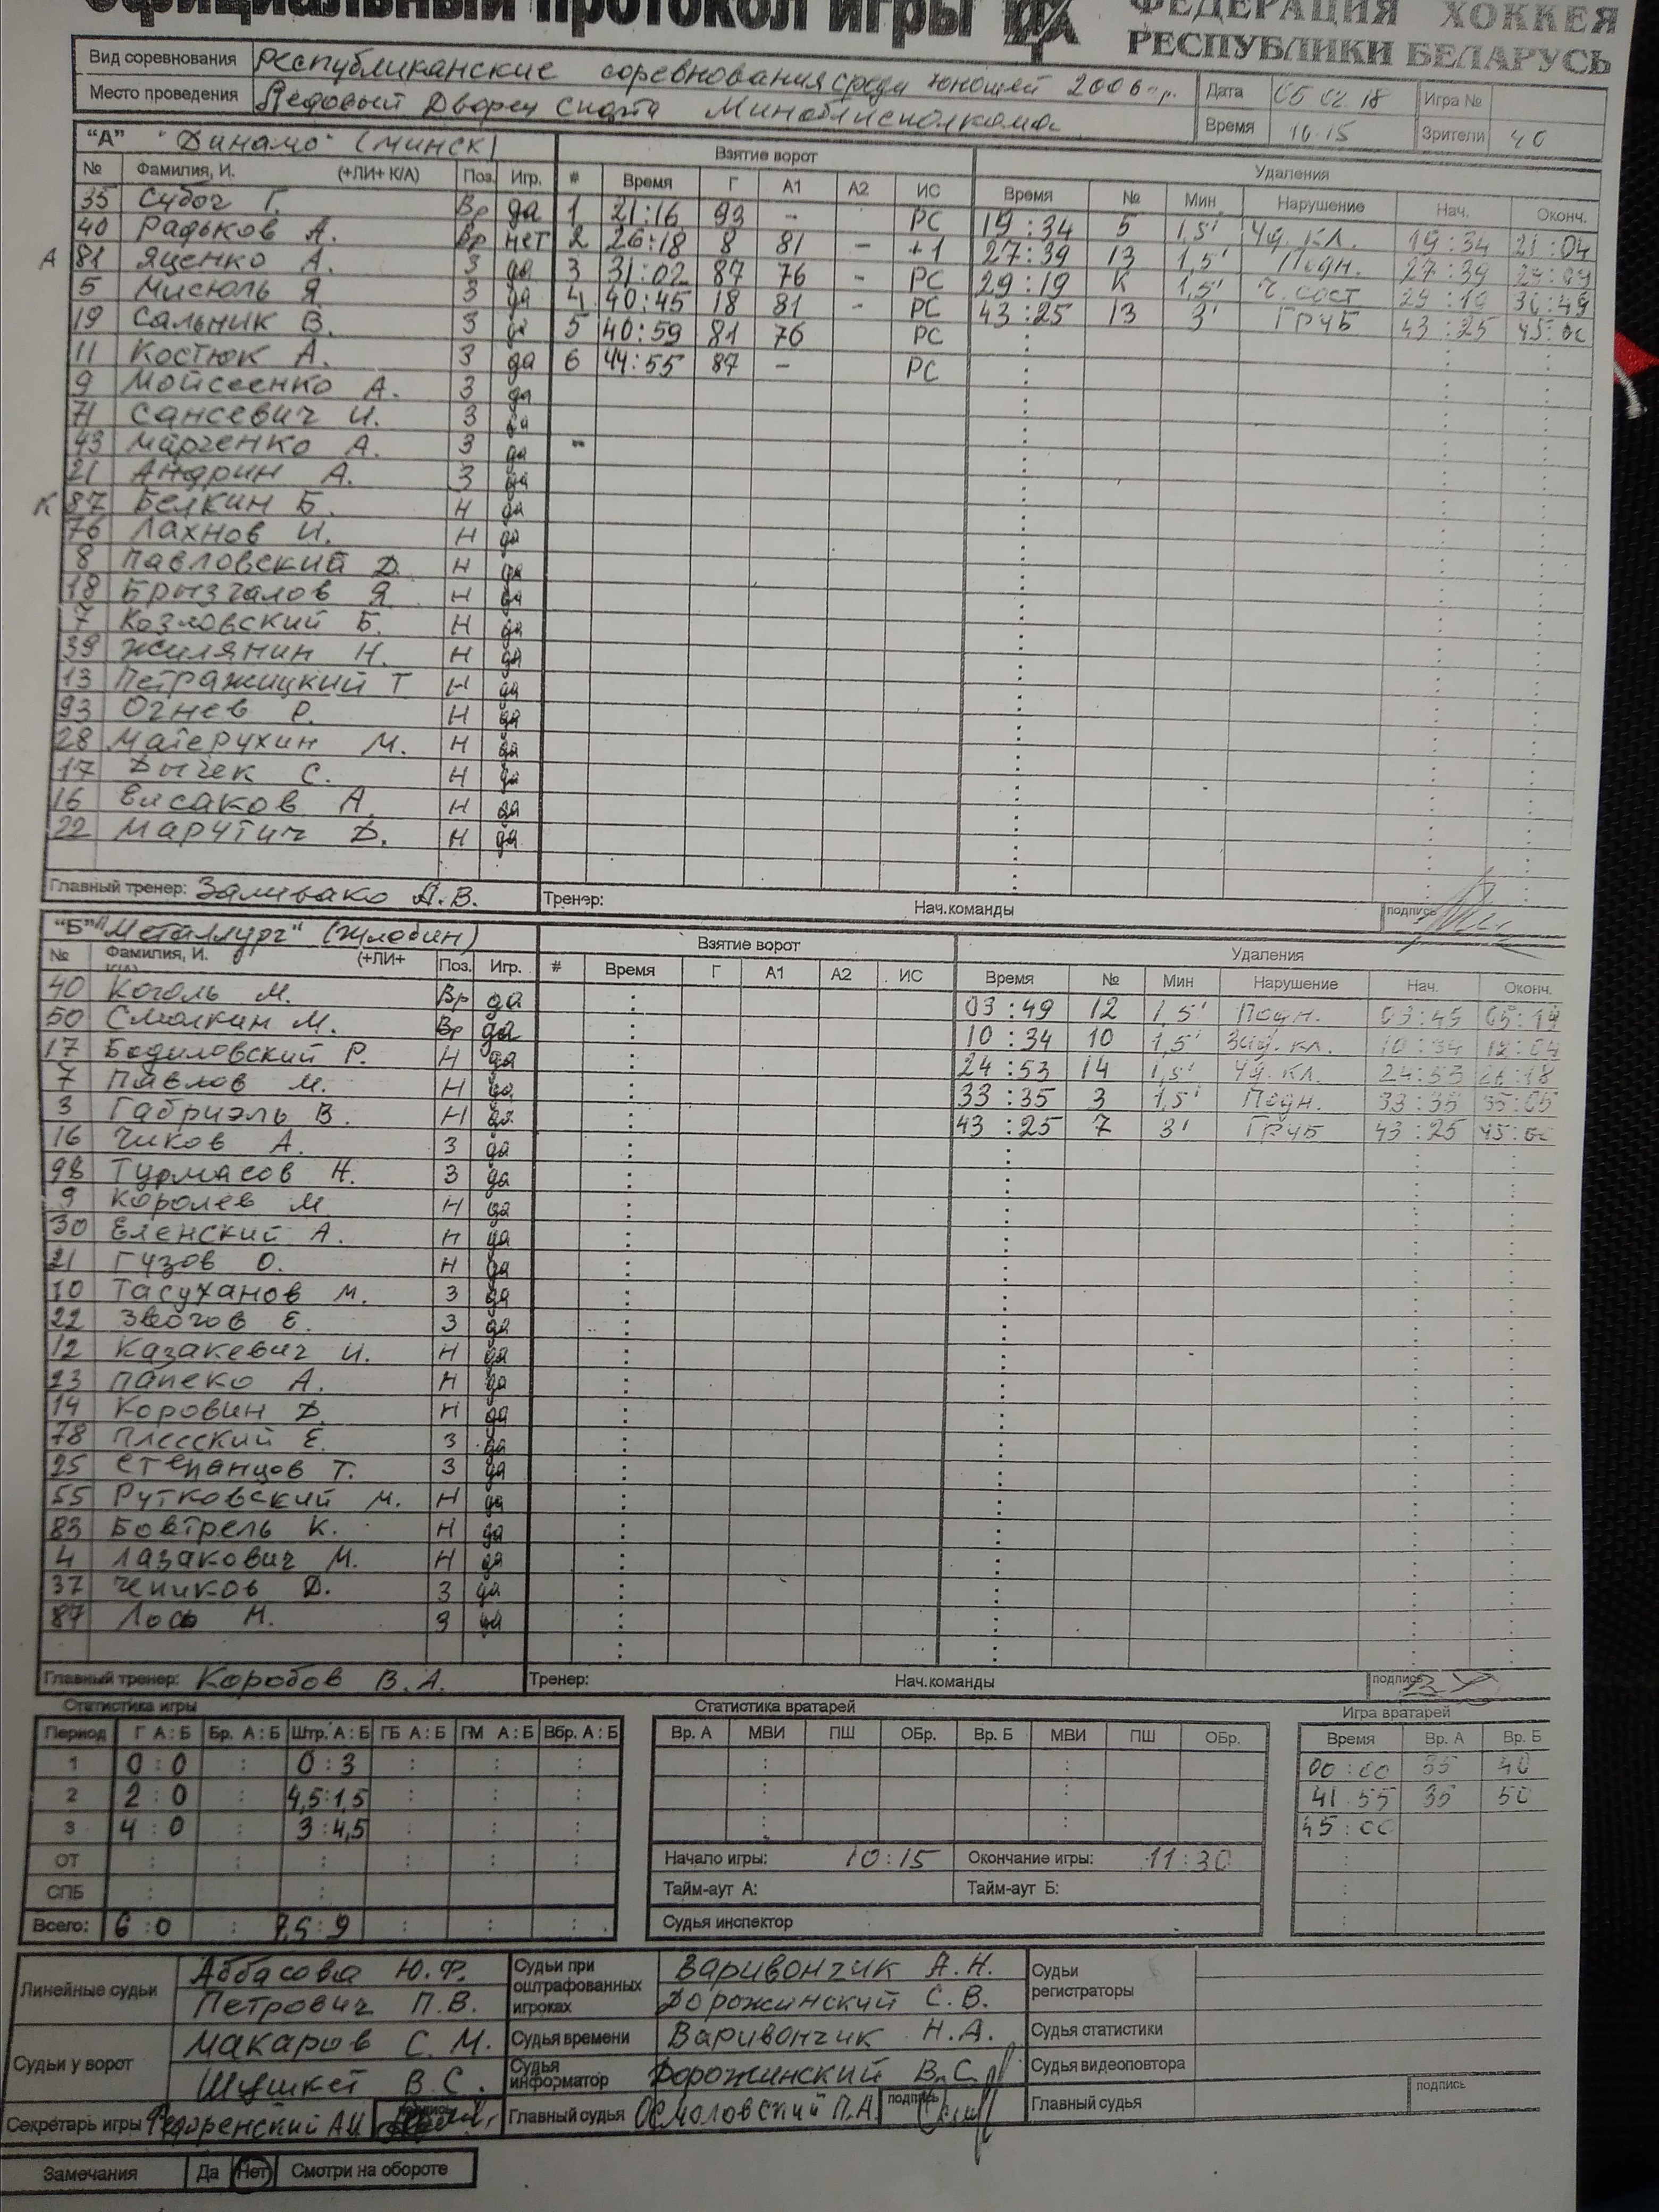 Официальный протокол игры
ФЕДЕРАЦИЯ ХОККЕЯ
РЕСПУБЛИКИ БЕЛАРУСЬ
Вид соревнования Республиканские соревнования среди юношей 2006 г.р. Дата 05 02 18 Игра №
Место проведения Ледовый Дворец спорта Миноблисполкома Время 10 15 Зрители 40
"А" "Динамо" (Минск) Взятие ворот Удаления
№ Фамилия, И. (+ЛИ+ К/А) Поз. Игр. # Время Г А1 А2 ИС Время № Мин Нарушение Нач. Оконч.
35 Субоч Г. Вр да 1 21:16 93 - РС 19:34 5 1,5' Уд. кл. 19:34 21:04
40 Радьков А. Вр нет 2 26:18 8 81 - +1 27:39 13 1,5' Подн. 27:39 29:09
А 81 Яценко А. З да 3 31:02 87 76 - РС 29:19 К 1,5' Ч. сост 29:19 30:49
5 Мисюль Я. З да 4 40:45 18 81 - РС 43:25 13 3' ГРУБ 43:25 45:00
19 Сальник В. З да 5 40:59 81 76 РС
11 Костюк А. З да 6 44:55 87 - РС
9 Мойсеенко А. З да
71 Сансевич И. З да
43 Марченко А. З да
21 Андрин А. З да
К 87 Белкин Б. Н да
76 Лахнов И. Н да
8 Павловский Д. Н да
18 Брызгалов Я. Н да
7 Козловский Б. Н да
39 Жилянин Н. Н да
13 Петражицкий Т Н да
93 Огнев Р. Н да
28 Матерухин М. Н да
17 Дычек С. Н да
16 Елсаков А. Н да
22 Марутич Д. Н да
Главный тренер: Заливако А.В. Тренер: Нач.команды подпись
"Б" "Металлург" (Жлобин) Взятие ворот Удаления
№ Фамилия, И. (+ЛИ+ К/А) Поз. Игр. # Время Г А1 А2 ИС Время № Мин Нарушение Нач. Оконч.
40 Коголь М. Вр да 03:49 12 1,5' Подн. 03:49 05:19
50 Смолкин М. Вр да 10:34 10 1,5' Зад. кл. 10:34 12:04
17 Бодиловский Р. Н да 24:53 14 1,5' Уд. кл. 24:53 26:18
7 Павлов М. Н да 33:35 3 1,5' Подн. 33:35 35:05
3 Габриэль В. Н да 43:25 7 3' ГРУБ 43:25 45:00
16 Чиков А. З да
98 Турмасов Н. З да
9 Королев М. Н да
30 Еленский А. Н да
21 Гузов О. Н да
10 Тасуханов М. З да
22 Звогов Е. З да
12 Казакевич И. Н да
23 Папеко А. Н да
14 Коровин Д. Н да
78 Плесский Е. З да
25 Степанцов Т. З да
55 Рутковский М. Н да
83 Бовтрель К. Н да
4 Лазакович М. Н да
37 Чепиков Д. З да
87 Лось Н. З да
Главный тренер: Коробов В.А. Тренер: Нач.команды подпись
Статистика игры Статистика вратарей Игра вратарей
Период Г А:Б Бр. А:Б Штр. А:Б ГБ А:Б ГМ А:Б Вбр. А:Б Вр. А МВИ ПШ ОБр. Вр. Б МВИ ПШ ОБр. Время Вр. А Вр. Б
1 0:0 : 0:3 : : : 00:00 35 40
2 2:0 : 4,5:1,5 : : : 41 55 35 50
3 4:0 : 3:4,5 : : : 45:00
ОТ Начало игры: 10:15 Окончание игры: 11:30
СПБ Тайм-аут А: Тайм-аут Б:
Всего: 6:0 : 7,5:9 : : : Судья инспектор
Линейные судьи Аббасова Ю.Ф. Судьи при оштрафованных игроках Варивончик А.Н. Судьи регистраторы
Петрович П.В. Дорожинский С.В.
Судьи у ворот Макаров С.М. Судья времени Варивончик Н.А. Судья статистики
Шушкет В.С. Судья информатор Дорожинский В.С. Судья видеоповтора
Секретарь игры Федоренский АИ подпись Главный судья Осмоловский П.А. подпись Главный судья подпись
Замечания Да Нет Смотри на обороте